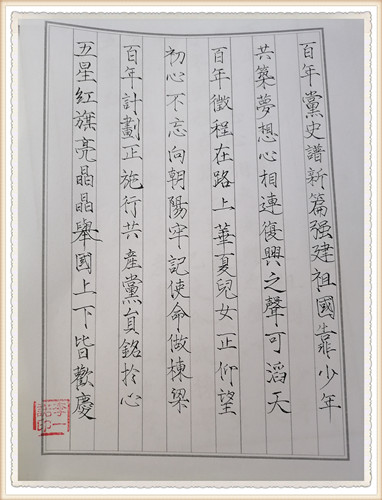 百年黨史譜新篇強建祖國靠少年
共築夢想心相連復興之聲可滔天
百年徵程在路上華夏兒女正仰望
初心不忘向朝陽牢記使命做棟梁
百年計劃正施行共產黨員銘於心
五星紅旗亮晶晶舉國上下皆歡慶